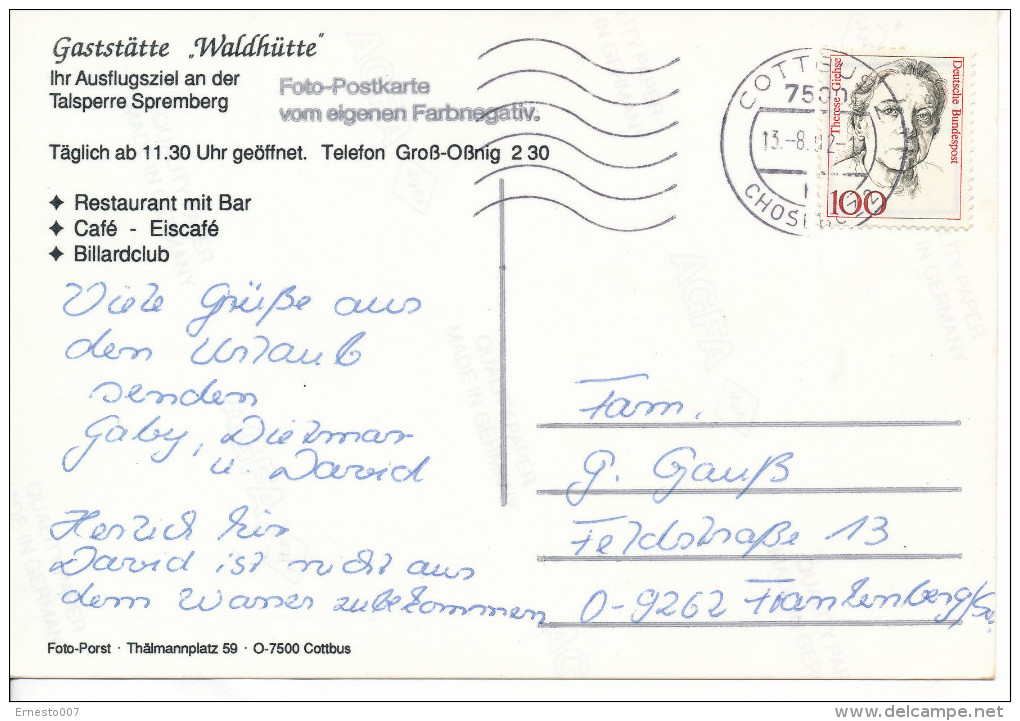 Gaststätte „Waldhütte"
Ihr Ausflugsziel an der
Talsperre Spremberg
Foto-Postkarte
vom eigenen Farbnegativ.
Täglich ab 11.30 Uhr geöffnet. Telefon Groß-Oßnig 2 30
✦ Restaurant mit Bar
✦ Café - Eiscafé
✦ Billardclub
COTTBUS
13.-8.
Therese Giehse
Deutsche Bundespost
100
Viele Grüße aus
dem Urlaub
senden
Gaby, Dietmar
u. David
Herrlich hier
David ist nicht aus
dem Wasser zubekommen
Fam.
G. Gauß
Feldstraße 13
O-9262 Frankenberg/Sa.
Foto-Porst · Thälmannplatz 59 · O-7500 Cottbus
AGFA
QUALITY PAPER
MADE IN GERMANY
Ernesto007
delcampe.net